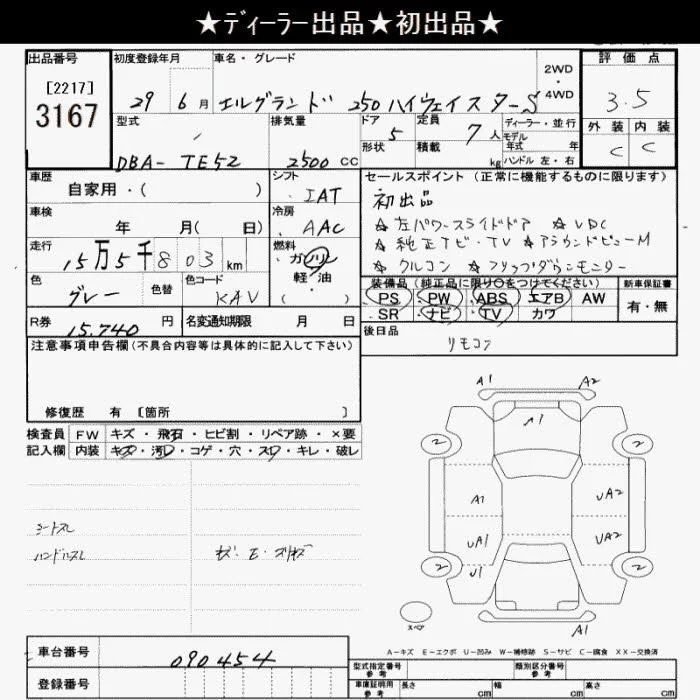 ★ディーラー出品★初出品★
出品番号 初度登録年月 車名・グレード 2WD・4WD 評価点
[2217]
3167
29年 6月 エルグランド 250ハイウェイスターS 3.5
型式 排気量 ドア 5 定員 7人 ディーラー・並行 外装 内装
モデル年式 年
形状 積載 kg ハンドル 左・右 C C
DBA- TE52 2500 CC
車歴 シフト セールスポイント (正常に機能するものに限ります)
自家用・( ) IAT 初出品
車検 冷房 ☆左パワースライドドア ☆VDC
年 月( 日) AAC ☆純正ナビ・TV ☆アラウンドビューM
走行 燃料 ☆クルコン ☆フリップダウンモニター
15万5千803km ガソリン・軽油
( )
色 色替 色コード 装備品 (純正品に限り○をつけてください) 新車保証書
グレー KAV PS PW ABS エアB AW 有・無
SR ナビ TV カワ
R券 15.740円 名変通知期限 月 日 後日品
注意事項申告欄(不具合内容等は具体的に記入して下さい) リモコン
修復歴 有 [箇所 ]
検査員 FW キズ・飛石・ヒビ割・リペア跡・×要
記入欄 内装 キズ・汚レ・コゲ・穴・スレ・キレ・破レ
A1 A2
A1
2 2
A1 UA2
UA1 UA2
2 U1 2
シートスレ
ハンドルスレ
スペア A1
A-キズ E-エクボ U-凹み W-補修跡 S-サビ C-腐食 XX-交換済
車台番号 090454
登録番号
型式指定番号 参考 類別区分番号 参考
車庫証明用 参考 長さ cm 幅 cm 高さ cm